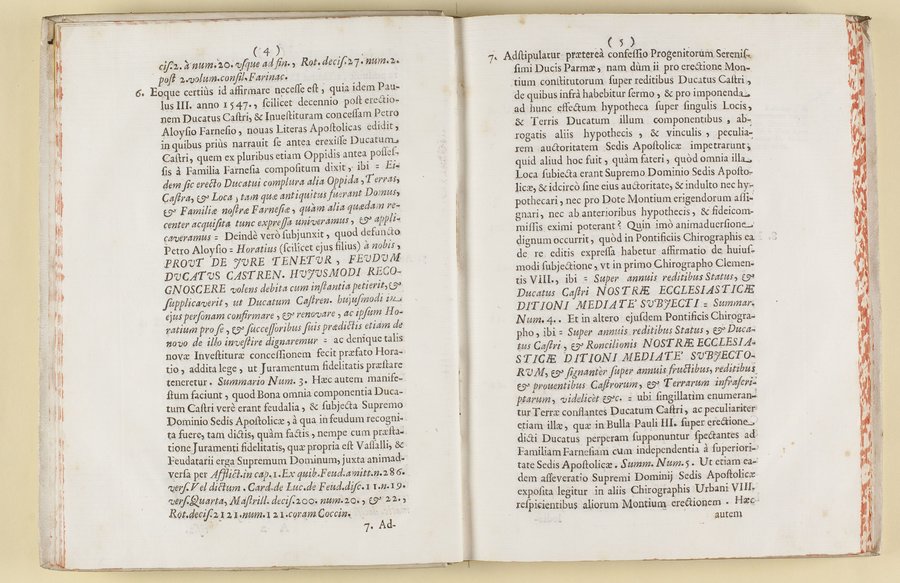 ( 4 )
cis.2. à num.20. vsque ad fin., Rot. decis.27. num.2.
post 2.volum.consil.Farinac.
6. Eoque certiùs id affirmare necesse est, quia idem Pau-
lus III. anno 1547., scilicet decennio post erectio-
nem Ducatus Castri, & Inuestituram concessam Petro
Aloysio Farnesio, nouas Literas Apostolicas edidit,
in quibus priùs narrauit se antea erexisse Ducatum
Castri, quem ex pluribus etiam Oppidis antea posses-
sis à Familia Farnesia compositum dixit, ibi = Ei-
dem sic erecto Ducatui complura alia Oppida, Terras,
Castra, & Loca, tam quæ antiquitus fuerant Domus,
& Familiæ nostræ Farnesiæ, quàm alia quædam re-
center acquisita tunc expressa univeramus, & appli-
caveramus = Deindè verò subjunxit, quod defuncto
Petro Aloysio = Horatius (scilicet ejus filius) à nobis,
PROVT DE JVRE TENETVR, FEVDVM
DVCATVS CASTREN. HVJVSMODI RECO-
GNOSCERE volens debita cum instantia petierit, &
supplicaverit, ut Ducatum Castren. hujusmodi in
ejus personam confirmare, & renovare, ac ipsum Ho-
ratium pro se, & successoribus suis prædictis etiam de
novo de illo investire dignaremur = ac denique talis
novæ Investituræ concessionem fecit præfato Hora-
tio, addita lege, ut Juramentum fidelitatis præstare
teneretur. Summario Num. 3. Hæc autem manife-
stum faciunt, quod Bona omnia componentia Duca-
tum Castri verè erant feudalia, & subjecta Supremo
Dominio Sedis Apostolicæ, à qua in feudum recogni-
ta fuere, tam dictis, quàm factis, nempe cum præsta-
tione Juramenti fidelitatis, quæ propria est Vassalli, &
Feudatarii erga Supremum Dominum, juxta animad-
versa per Afflict.in cap.1.Ex quib.Feud.amitt.n.286.
vers.Vel dictum. Card.de Luc.de Feud.disc.11.n.19.
vers.Quarta, Mastrill. decis.200. num.20., & 22.,
Rot.decis.2121.num.121.coram Coccin.
7. Ad-
( 5 )
7. Adstipulatur prætereà confessio Progenitorum Serenis-
simi Ducis Parmæ, nam dùm ii pro erectione Mon-
tium constitutorum super reditibus Ducatus Castri,
de quibus infrà habebitur sermo, & pro imponenda
ad hunc effectum hypotheca super singulis Locis,
& Terris Ducatum illum componentibus, ab-
rogatis aliis hypothecis, & vinculis, peculia-
rem auctoritatem Sedis Apostolicæ impetrarunt;
quid aliud hoc fuit, quàm fateri, quòd omnia illa
Loca subiecta erant Supremo Dominio Sedis Aposto-
licæ, & idcircò sine eius auctoritate, & indulto nec hy-
pothecari, nec pro Dote Montium erigendorum assi-
gnari, nec ab anterioribus hypothecis, & fideicom-
missis eximi poterant? Quin imò animaduersione
dignum occurrit, quòd in Pontificiis Chirographis ea
de re editis expressa habetur affirmatio de huius-
modi subjectione, vt in primo Chirographo Clemen-
tis VIII., ibi = Super annuis reditibus Status, &
Ducatus Castri NOSTRÆ ECCLESIASTICÆ
DITIONI MEDIATE SVBJECTI = Summar.
Num. 4.. Et in altero ejusdem Pontificis Chirogra-
pho, ibi = Super annuis reditibus Status, & Duca-
tus Castri, & Roncilionis NOSTRÆ ECCLESIA-
STICÆ DITIONI MEDIATE SVBJECTO-
RVM, & signantèr super annuis fructibus, reditibus
& prouentibus Castrorum, & Terrarum infrascri-
ptarum, videlicèt &c. = ubi singillatim enumeran-
tur Terræ constantes Ducatum Castri, ac peculiariter
etiam illæ, quæ in Bulla Pauli III. super erectione
dicti Ducatus perperam supponuntur spectantes ad
Familiam Farnesiam cum independentia à superiori-
tate Sedis Apostolicæ. Summ. Num.5. Ut etiam ea-
dem asseveratio Supremi Dominij Sedis Apostolicæ
exposita legitur in aliis Chirographis Urbani VIII.
respicientibus aliorum Montium erectionem. Hæc
autem